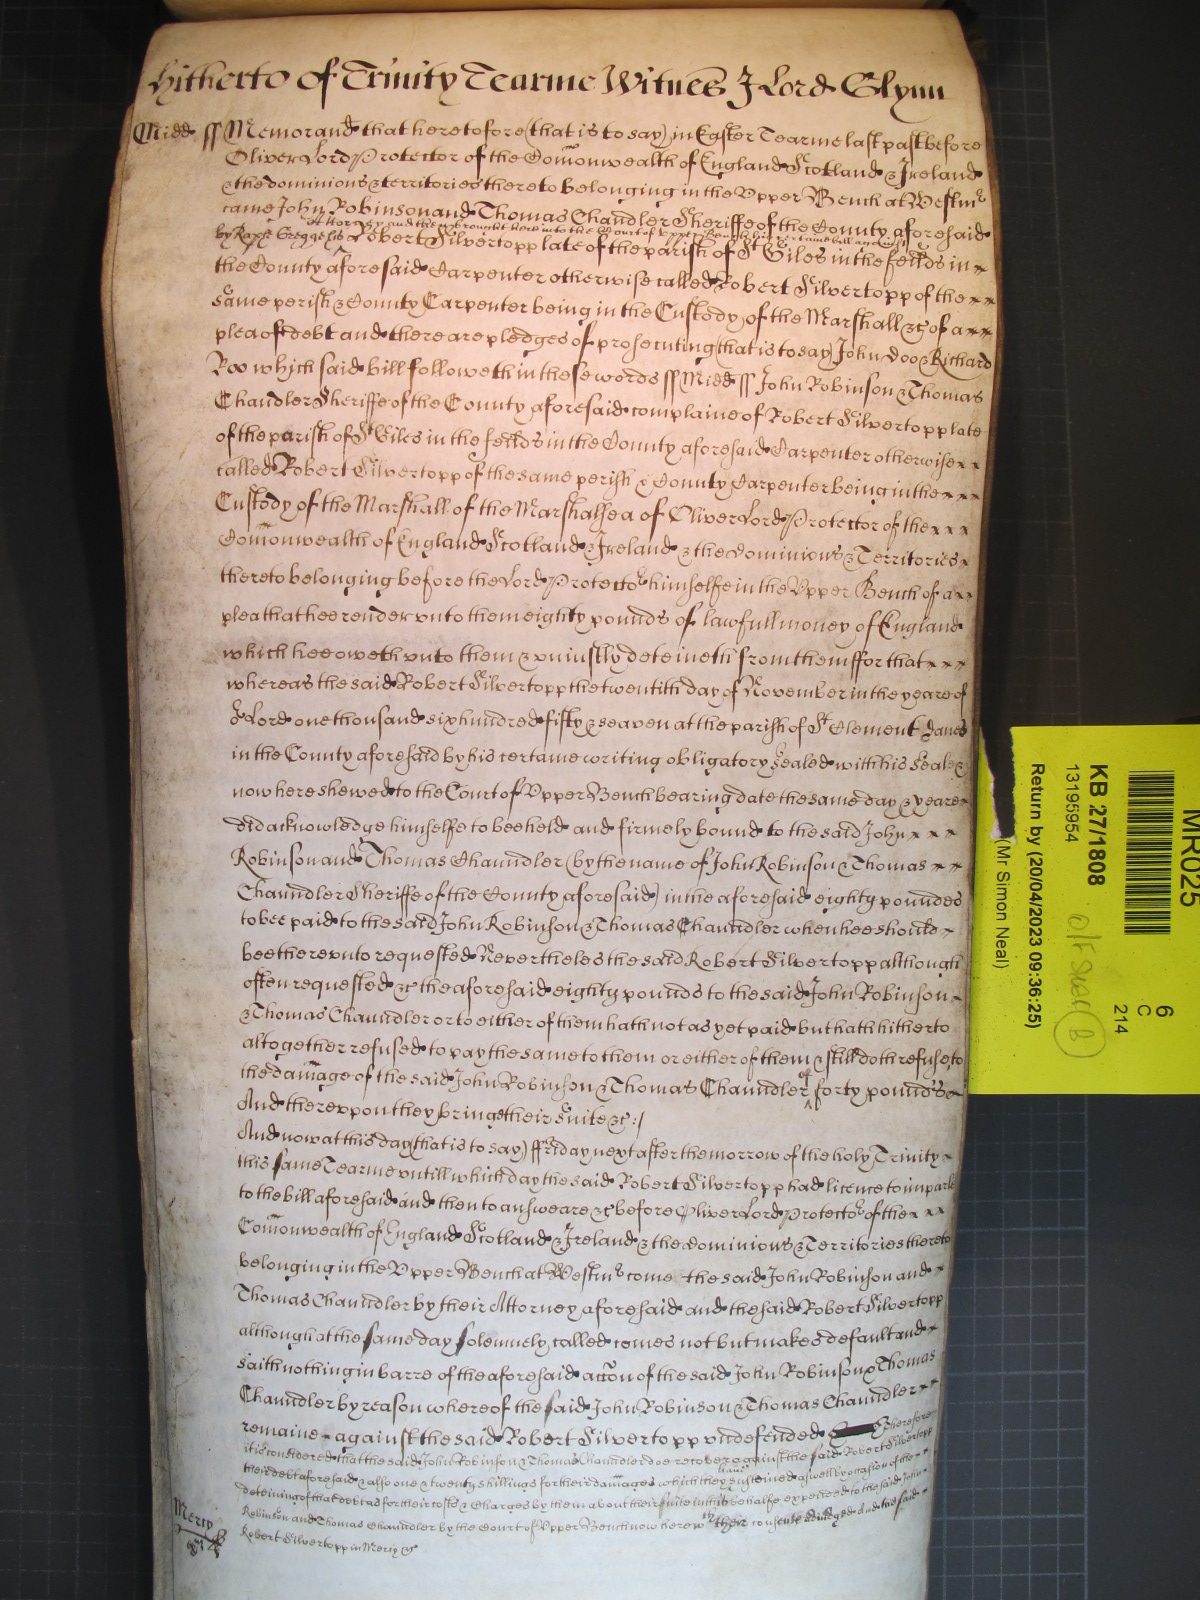 hitherto of Trinity Tearme Witnes J Lord Glynn
Midd ss Memorand that heretofore (that is to say) in Easter Tearme last past before
Oliver Lord Protector of the Comonwealth of England Scotland & Ireland
& the dominions & territories thereto belonging in the Upper Bench at Westmr
came John Robinson and Thomas Chandler Sheriffe of the County aforesaid
by Raph Gregge his Attorney and they brought here into the Court of Upper Bench his certaine bill against
Robert Silvertopp late of the parish of St Giles in the feilds in
the County aforesaid Carpenter otherwise called Robert Silvertopp of the
same perish & County Carpenter being in the Custody of the Marshall &c of a
plea of debt and there are pledges of prosecuting (that is to say) John Doo & Richard
Roo which said bill followeth in these words ss Midd ss John Robinson & Thomas
Chandler Sheriffe of the County aforesaid complaine of Robert Silvertopp late
of the parish of St Giles in the feilds in the County aforesaid Carpenter otherwise
called Robert Silvertopp of the same perish & County Carpenter being in the
Custody of the Marshall of the Marshalsea of Oliver Lord Protector of the
Comonwealth of England Scotland & Ireland & the Dominions & Territories
thereto belonging before the Lord Protector himselfe in the Upper Bench of a
plea that hee render unto them eighty pounds of lawfull money of England
which hee oweth unto them & uniustly deteineth from them ffor that
whereas the said Robert Silvertopp the twentith day of November in the yeare of
or Lord one thousand six hundred fifty & seaven at the parish of St Clement Danes
in the County aforesaid by his certaine writing obligatory sealed with his seale &
now here shewed to the Court of Upper Bench bearing date the same day & yeare
did acknowledge himselfe to bee held and firmely bound to the said John
Robinson and Thomas Chaundler (by the name of John Robinson & Thomas
Chaundler Sheriffe of the County aforesaid) in the aforesaid eighty poundes
to bee paid to the said John Robinson & Thomas Chaundler when hee should
bee thereunto requested Nevertheles the said Robert Silvertopp although
often requested &c the aforesaid eighty pounds to the said John Robinson
& Thomas Chaundler or to either of them hath not as yet paid but hath hitherto
altogether refused to pay the same to them or either of them & still doth refuse to
the damage of the said John Robinson & Thomas Chaundler of forty pounds
And thereuppon they bringe their suite &c :/
And now at this day (that is to say) ffriday next after the morrow of the holy Trinity
this same Tearme untill which day the said Robert Silvertopp had licence to imparle
to the bill aforesaid and then to answeare &c before Oliver Lord Protector of the
Comonwealth of England Scotland & Ireland & the dominions & Territories thereto
belonging in the Upper Bench at Westmr come the said John Robinson and
Thomas Chaundler by their Attorney aforesaid and the said Robert Silvertopp
although at the same day solemnely called comes not but makes default and
saith nothing in barre of the aforesaid accon of the said John Robinson & Thomas
Chaundler by reason whereof the said John Robinson & Thomas Chaundler
remaine against the said Robert Silvertopp undefended Therefore
it is considered that the said John Robinson & Thomas Chaundler doe recover against the said Robert Silvertopp
their debt aforesaid & also one & twenty shillings for their damages which they have susteined aswell by occasion of the
deteining of that debt as for their costs & Charges by them about their suite in this behalfe expended to the said John
Robinson and Thomas Chaundler by the Court of Upper Bench now here wth their consente adiudged And the said
Robert Silvertopp in Mercy &c
Mercy
MR025
6
C
214
KB 27/1808
13195954
Return by (20/04/2023 09:36:25)
(Mr Simon Neal)